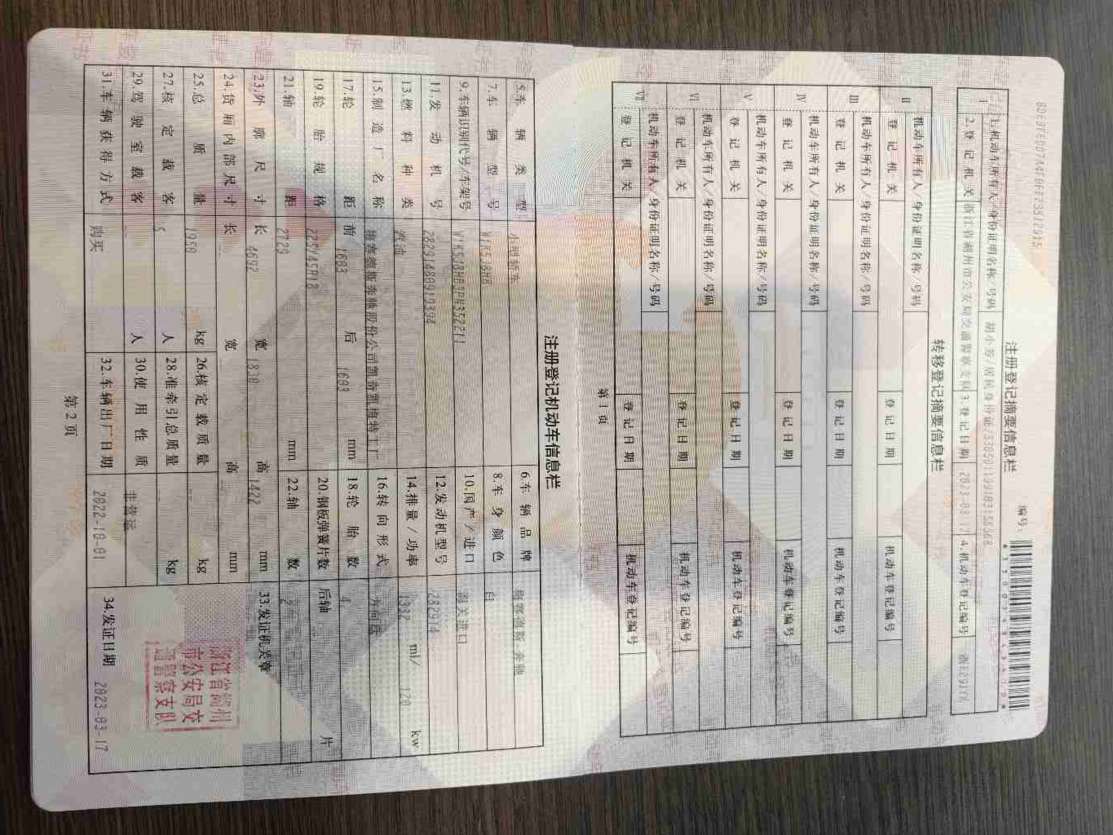 注册登记摘要信息栏
编号:
Ⅰ
1.机动车所有人/身份证明名称/号码 胡小芳/居民身份证/
2.登记机关 浙江省湖州市公安局交通警察支队 3.登记日期 2023-03-17 4.机动车登记编号
转移登记摘要信息栏
Ⅱ 机动车所有人/身份证明名称/号码
登记机关 登记日期 机动车登记编号
Ⅲ 机动车所有人/身份证明名称/号码
登记机关 登记日期 机动车登记编号
Ⅳ 机动车所有人/身份证明名称/号码
登记机关 登记日期 机动车登记编号
Ⅴ 机动车所有人/身份证明名称/号码
登记机关 登记日期 机动车登记编号
Ⅵ 机动车所有人/身份证明名称/号码
登记机关 登记日期 机动车登记编号
Ⅶ 机动车所有人/身份证明名称/号码
登记机关 登记日期 机动车登记编号
第1页
注册登记机动车信息栏
5.车辆类型 小型轿车 6.车辆品牌 梅赛德斯-奔驰
7.车辆型号 8.车身颜色 白
9.车辆识别代号/车架号 10.国产/进口 海关进口
11.发动机号 12.发动机型号 282914
13.燃料种类 汽油 14.排量/功率 1332 ml/ 120 kw
15.制造厂名称 梅赛德斯奔驰股份公司凯奇凯梅特工厂 16.转向形式 方向盘
17.轮距 前 1603 后 1603 mm 18.轮胎数 4
19.轮胎规格 225/45R18 20.钢板弹簧片数 后轴 片
21.轴距 2729 mm 22.轴数 2
23.外廓尺寸 长 4692 宽 1830 高 1422 mm 33.发证机关章
24.货厢内部尺寸 长 宽 高 mm
25.总质量 1950 kg 26.核定载质量 kg
27.核定载客 5 人 28.准牵引总质量 kg
29.驾驶室载客 人 30.使用性质 非营运
31.车辆获得方式 购买 32.车辆出厂日期 2022-10-01 34.发证日期 2023-03-17
浙江省湖州
市公安局交
通警察支队
第2页